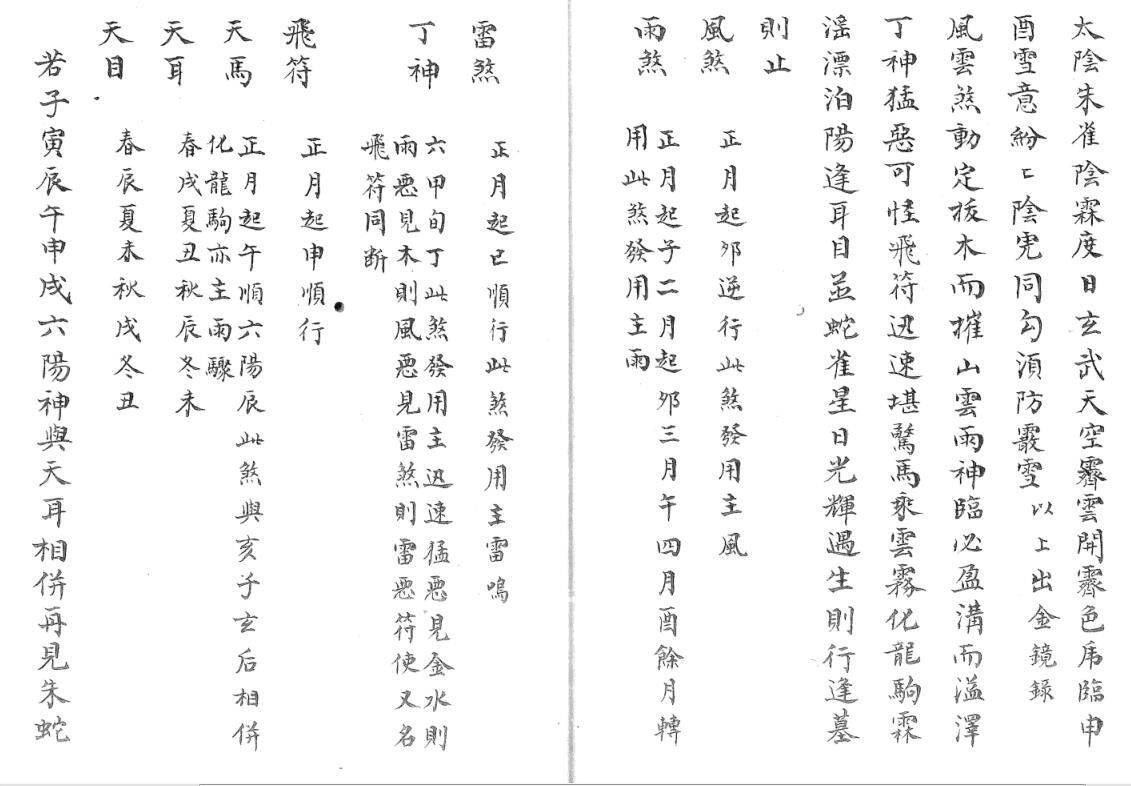 太陰朱雀陰霖度日玄武天空霽雲開霽色虎臨申
酉雪意紛〻陰虎同勾須防霰雪以上出金鏡錄
風雲煞動定拔木而摧山雲雨神臨必盈溝而溢澤
丁神猛惡可怪飛符迅速堪驚馬乘雲霧化龍駒霖
滛漂泊陽逢耳目並蛇雀星日光輝遇生則行逢墓
則止
風煞 正月起夘逆行此煞發用主風
雨煞 正月起子二月起夘三月午四月酉餘月轉
用此煞發用主雨
雷煞 正月起巳順行此煞發用主雷鳴
丁神 六甲旬丁此煞發用主迅速猛惡見金水則
雨惡見木則風惡見雷煞則雷惡符使又名
飛符同斷
飛符 正月起申順行
天馬 正月起午順六陽辰此煞與亥子玄后相併
化龍駒亦主雨驟
天耳 春戌夏丑秋辰冬未
天目 春辰夏未秋戌冬丑
若子寅辰午申戌六陽神與天耳相併再見朱蛇